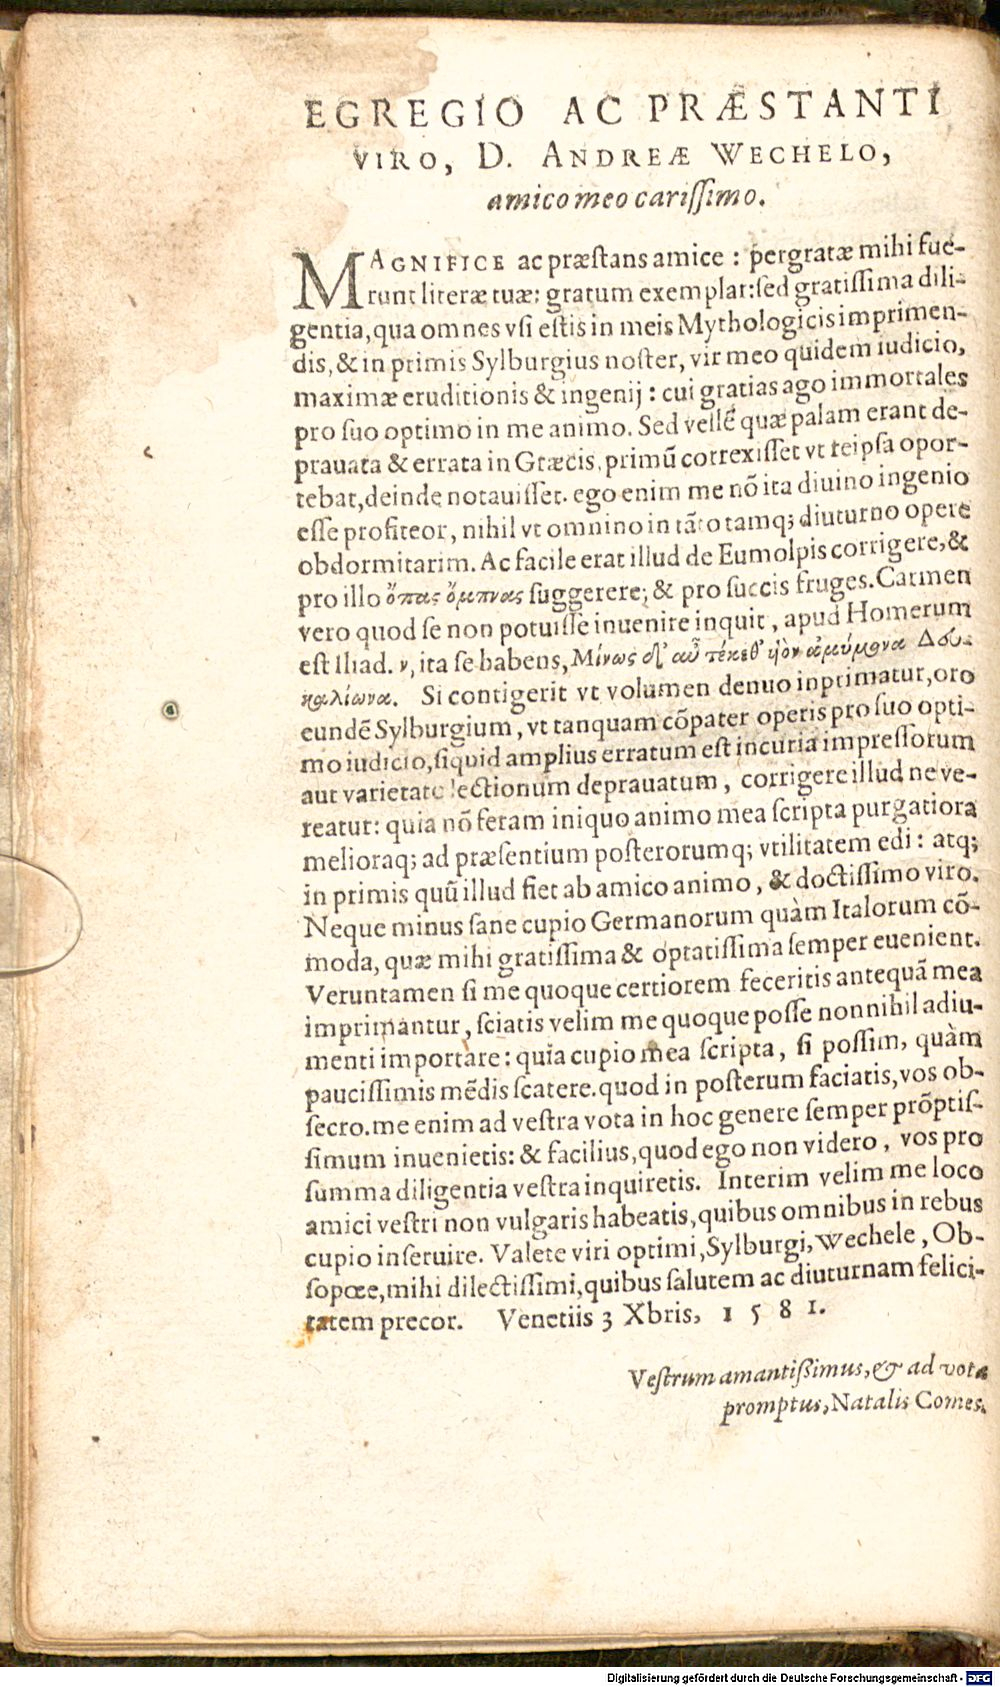 EGREGIO AC PRÆSTANTI
VIRO, D. ANDREÆ WECHELO,
amico meo cariſſimo.
MAGNIFICE ac præſtans amice : pergratæ mihi fue-
runt literæ tuæ: gratum exemplar: ſed gratiſſima dili-
gentia, qua omnes vſi eſtis in meis Mythologicis imprimen-
dis, & in primis Sylburgius noſter, vir meo quidem iudicio,
maximæ eruditionis & ingenij : cui gratias ago immortales
pro ſuo optimo in me animo. Sed vellē quæ palam erant de-
prauata & errata in Græcis, primū correxiſſet vt reipſa opor-
tebat, deinde notauiſſet. ego enim me nō ita diuino ingenio
eſſe profiteor, nihil vt omnino in tāto tamq; diuturno opere
obdormitarim. Ac facile erat illud de Eumolpis corrigere, &
pro illo ὄπας ὄμπνας ſuggerere; & pro ſuccis fruges. Carmen
vero quod ſe non potuiſſe inuenire inquit, apud Homerum
eſt Iliad. ν, ita ſe habens, Μίνως δ' αὖ τέκεθ' υἱὸν ἀμύμονα Δευ-
καλίωνα. Si contigerit vt volumen denuo inprimatur, oro
eundē Sylburgium, vt tanquam cōpater operis pro ſuo opti-
mo iudicio, ſiquid amplius erratum eſt incuria impreſſorum
aut varietate lectionum deprauatum, corrigere illud ne ve-
reatur: quia nō feram iniquo animo mea ſcripta purgatiora
melioraq; ad præſentium poſterorumq; vtilitatem edi : atq;
in primis quū illud fiet ab amico animo, & doctiſſimo viro.
Neque minus ſane cupio Germanorum quàm Italorum cō-
moda, quæ mihi gratiſſima & optatiſſima ſemper euenient.
Veruntamen ſi me quoque certiorem feceritis antequā mea
imprimantur, ſciatis velim me quoque poſſe nonnihil adiu-
menti importare: quia cupio mea ſcripta, ſi poſſim, quàm
pauciſſimis mēdis ſcatere. quod in poſterum faciatis, vos ob-
ſecro. me enim ad veſtra vota in hoc genere ſemper prōptiſ-
ſimum inuenietis: & facilius, quod ego non videro, vos pro
ſumma diligentia veſtra inquiretis. Interim velim me loco
amici veſtri non vulgaris habeatis, quibus omnibus in rebus
cupio inſeruire. Valete viri optimi, Sylburgi, Wechele, Ob-
ſopœe, mihi dilectiſſimi, quibus ſalutem ac diuturnam felici-
tatem precor. Venetiis 3 Xbris, 1581.
Veſtrum amantiſſimus, & ad vota
promptus, Natalis Comes.
Digitalisierung gefördert durch die Deutsche Forschungsgemeinschaft - DFG